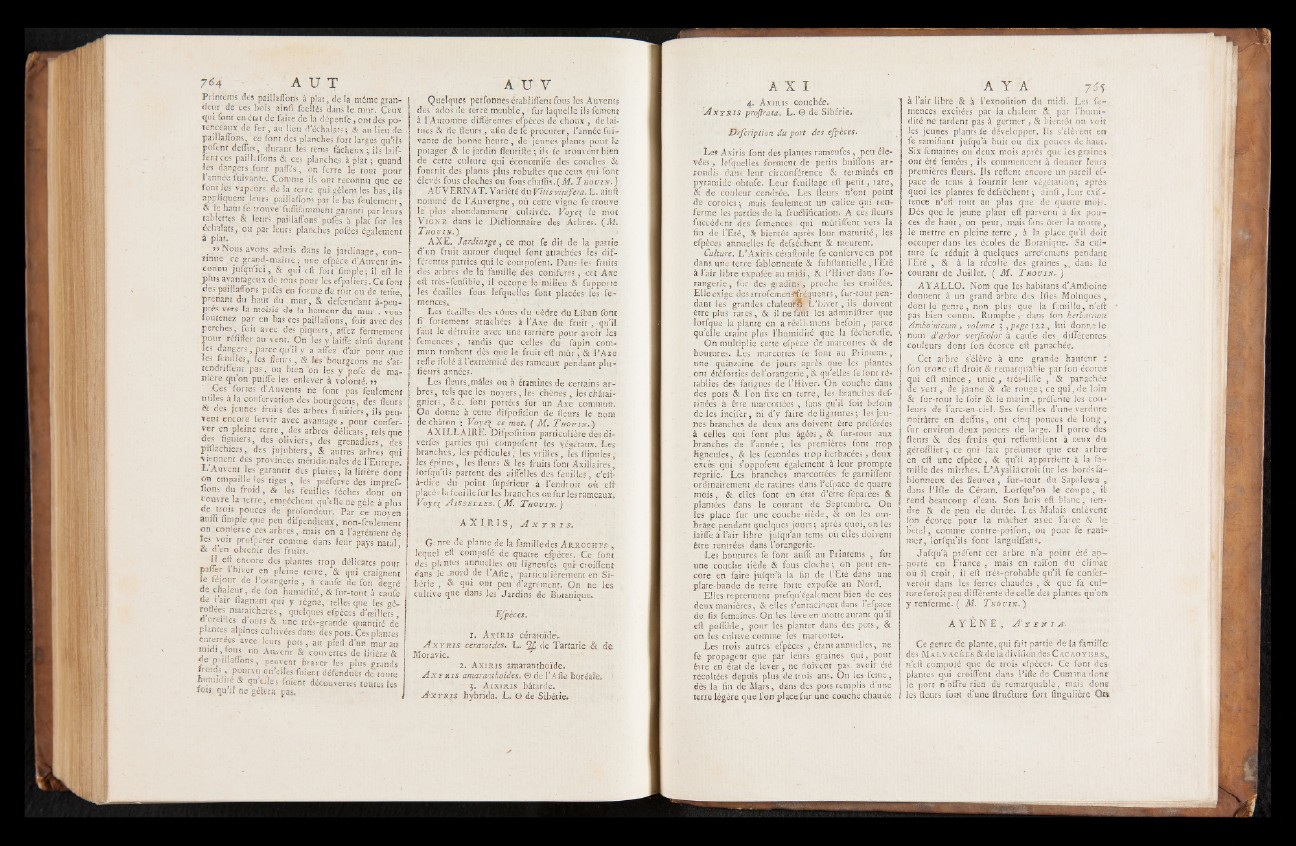 764 A U T
Printems des paillassons à plat, de la même gran-
deur de ces bois ainsi scellés dans le mur. Ceux
qui sont en état de faire de la dépense, ont des po-
tenceaux de fer, au lieu d'échalats; & au lieu de
paillassons, ce sont des planches fort larges qu'ils
posent dessus, durant les tems fâcheux; ils lais-
sent ces paillassons & ces planches à plat; quand
les dangers sont passés, on serre le tout pour
l'année suivante. Comme ils ont reconnu que ce
sont les vapeurs de la terre qui gèlent les bas, ils
appliquent leurs paillassons par le bas seulement,
& le haut se trouve suffisamment garanti par leurs
tablettes & leurs paillassons posés à plat sur les
échalats, ou par leurs planches posées également
à plat.
» Nous avons admis dans le jardinage, con-
tinue ce grand-maître; une espèce d'Auvent in-
connu jusqu'ici, & qui est fort simple; il est le
plus avantageux de tous pour les espaliers. Ce sont
des paillassons posés en forme de toit ou de tente,
prenant du haut du mur, & descendant à-peu-
près vers la moitié de la hauteur du mur. Vous
soutenez par en bas ces paillassons, soit avec des
perches, soit avec des piquets, assez fermement
pour résister au vent. On les y laisse ainsi durant
les dangers, parce qu'il y a assez d'air pour que
les feuilles, les fleurs, & les bourgeons ne s'at-
tendrissent pas, ou bien on les y pose de ma-
nière qu'on puisse les enlever à volonté. »
Ces sortes d'Auvents ne sont pas seulement
utiles à la conservation des bourgeons, des fleurs
& des jeunes fruits des arbres fruitiers, ils peu-
vent encore servir avec avantage, pour conser-
ver en pleine terre, des arbres délicats, tels que
des figuiers, des oliviers, des grenadiers, des
pistachiers, des jujubiers, & autres arbres qui
viennent des provinces méridionales de l'Europe.
L'Auvent les garantit des pluies; la litière dont
on empaille les tiges, les préserve des impres-
sions du froid, & les feuilles sèches dont on
couvre la terre, empêchent qu'elle ne gèle à plus
de trois pouces de profondeur. Par ce moyen
aussi simple que peu dispendieux, non-seulement
on conserve ces arbres, mais on a l'agrément de
les voir prospérer comme dans leur pays natal,
& d'en obtenir des fruits.
Il est encore des plantes trop délicates pour
passer l'hiver en pleine terre, & qui craignent
le séjour de l'orangerie, à cause de son degré
de chaleur, de son humidité, & sur-tout à cause
de l'air stagnant qui y règne, telles que les gé-
roflées maraîcheres, quelques espèces d'œillets,
d'oreilles d'ours & une très-grande quantité de
plantes alpines cultivées dans des pots. Ces plantes
enterrées avec leurs pots, au pied d'un mur au
midi, sous un Auvent & couvertes de litière &
de paillassons, peuvent braver les plus grands
froids, pourvu qu'elles soient défendues de toute
humidité & qu'elles soient découvertes toutes les
fois qu'il ne gèlera pas.
A U V
Quelques personnes établissent sous les Auvents
des ados de terre meuble, sur laquelle ils sement
à l'Automne différentes espèces de choux, de lai-
tues & de fleurs, afin de se procurer, l'année sui-
vante de bonne heure, de jeunes plants pour le
potager & le jardin fleuriste; ils se trouvent bien
de cette culture qui économise des couches &
fournit des plants plus robustes que ceux qui sont
élevés sous cloches ou sous chassis. ( M. Thouin. )
AUVERNAT. Variété du Vitis vinifera. L. ainsi
nommé de l'Auvergne, où cette vigne se trouve
le plus abondamment cultivée. Voyez le mot
Vigne dans le Dictionnaire des Arbres. ( M.
Thouin. )
AXE. Jardinage, ce mot se dit de la partie
d'un fruit autour duquel sont attachées les dif-
férentes parties qui le composent. Dans les fruits
des arbres de la famille des conifères, cet Axe
est très-sensible, il occupe le milieu & supporte
les écailles sous lesquelles sont placées les se-
mences.
Les écailles des cônes du cèdre du Liban sont
si fortement attachées à l'Axe du fruit, qu'il
faut le détruire avec une tarrière pour avoir les
semences, tandis que celles du sapin com-
mun tombent dès que le fruit est mûr, & l'Axe
reste isolé à l'extrémité des rameaux pendant plu-
sieurs années.
Les fleurs mâles ou à étamines de certains ar-
bres, tels que les noyers, les chênes, les châtai-
gniers, &c. sont portées sur un Axe commun.
On donne à cette disposition de fleurs le nom
de châton: Voyez ce mot. ( M. Thouin. )
AXILLAIRE. Disposition particulière des di-
verses parties qui composent les végétaux. Les
branches, les pédicules, les vrilles, les stipules,
les épines, les fleurs & les fruits sont Axillaires,
lorsqu'ils partent des aisselles des feuilles, c'est-
à-dire du point supérieur à l'endroit où est
placée la feuille sur les branches ou sur les rameaux.
Voyez Aisselles. ( M. Thouin. )
AXIRIS, Axyris.
Genre de plante de la famille des Arroches,
lequel est composé de quatre espèces. Ce sont
des plantes annuelles ou ligneuses qui croissent
dans le nord de l'Asie, particulièrement en Si-
bérie, & qui ont peu d'agrément. On ne les
cultive que dans les Jardins de Botanique.
Espèces.
1. Axiris cératoïde.
Axyris ceratoides. L. ♃ de Tartarie & de
Moravie.
2. Axiris amaranthoïde.
Axyris amaranthoides. ⊙ de l'Asie boréale.
3. Axiris bâtarde.
Axyris hybrida. L. ⊙ de Sibérie.
A X I
4. Axiris couchée.
Axyris prostrata. L. ⊙ de Sibérie.
Description du port des espèces.
Les Axiris sont des plantes rameuses, peu éle-
vées, lesquelles forment de petits buissons ar-
rondis dans leur circonférence & terminés en
pyramide obtuse. Leur feuillage est petit, rare,
& de couleur cendrée. Les fleurs n'ont point
de coroles; mais seulement un calice qui ren-
ferme les parties de la fructification. A ces fleurs
succèdent des semences qui mûrissent vers la
fin de l'Eté, & bientôt après leur maturité, les
espèces annuelles se dessèchent & meurent.
Culture. L'Axiris cératoïde se conserve en pot
dans une terre sablonneuse & substantielle, l'Eté
à l'air libre exposée au midi, & l'Hiver dans l'o-
rangerie, sur des gradins, proche les croisées.
Elle exige des arrosemens fréquens, sur-tout pen-
dant les grandes chaleurs. L'hiver, ils doivent
être plus rares, & il ne faut les administrer que
lorsque la plante en a réellement besoin, parce
qu'elle craint plus l'humidité que la sécheresse.
On multiplie cette espèce de marcottes & de
boutures. Les marcottes se font au Printems,
une quinzaine de jours après que les plantes
ont été sorties de l'orangerie, & qu'elles se sont ré-
tablies des fatigues de l'Hiver. On couche dans
des pots & l'on fixe en terre, les branches des-
tinées à être marcottées, sans qu'il soit besoin
de les inciser, ni d'y faire de ligatures; les jeu-
nes branches de deux ans doivent être préférées
à celles qui sont plus âgées, & sur-tout aux
branches de l'année; les premières sont trop
ligneuses, & les secondes trop herbacées, deux
excès qui s'opposent également à leur prompte
reprise. Les branches marcottées se garnissent
ordinairement de racines dans l'espace de quatre
mois, & elles sont en état d'être séparées &
plantées dans le courant de Septembre. On
les place sur une couche tiède, & on les om-
brage pendant quelques jours; après quoi, on les
laisse à l'air libre jusqu'au tems où elles doivent
être rentrées dans l'orangerie.
Les boutures se font aussi au Printems, sur
une couche tiède & sous cloche; on peut en-
core en faire jusqu'à la fin de l'Eté dans une
plate-bande de terre forte exposée au Nord.
Elles reprennent presqu'également bien de ces
deux manières, & elles s'enracinent dans l'espace
de six semaines. On les lève en motte autant qu'il
est possible, pour les planter dans des pots, &
on les cultive comme les marcottes.
Les trois autres espèces, étant annuelles, ne
se propagent que par leurs graines qui, pour
être en état de lever, ne doivent pas avoir été
récoltées depuis plus de trois ans. On les seme,
dès la fin de Mars, dans des pots remplis d'une
terre légère que l'on place sur une couche chaude
A Y A 765
à l'air libre & à l'exposition du midi. Les se-
mences excitées par la chaleur & par l'humi-
dité ne tardent pas à germer, & bientôt on voit
les jeunes plants se développer. Ils s'élèvent en
se ramifiant jusqu'à huit ou dix pouces de haut.
Six semaines ou deux mois après que les graines
ont été semées, ils commencent à donner leurs
premières fleurs. Ils restent encore un pareil es-
pace de tems à fournir leur végétation, après
quoi les plantes se dessèchent; ainsi, leur exis-
tence n'est tout au plus que de quatre mois.
Dès que le jeune plant est parvenu à six pou-
ces de haut, on peut, mais sans ôter la motte,
le mettre en pleine terre, à la place qu'il doit
occuper dans les écoles de Botanique. Sa cul-
ture se réduit à quelques arrosemens pendant
l'Eté, & à la récolte des graines, dans le
courant de Juillet. ( M. Thouin. )
AYALLO. Nom que les habitans d'Amboine
donnent à un grand arbre des Isles Moluques,
dont le genre, non plus que la famille, n'est
pas bien connu. Rumphe, dans son herbarium
Amboinicum, volume 3, page 122, lui donne le
nom d'arbor versicolor à cause des différentes
couleurs dont son écorce est panachée.
Cet arbre s'élève à une grande hauteur :
son tronc est droit & remarquable par son écorce
qui est mince, unie, très-lisse, & panachée
de vert, de jaune & de rouge; ce qui, de loin
& sur-tout le soir & le matin, présente les cou-
leurs de l'arc-en-ciel. Ses feuilles d'une verdure
noirâtre en dessus, ont cinq pouces de long,
sur environ deux pouces de large. Il porte des
fleurs & des fruits qui ressemblent à ceux du
géroflier; ce qui fait présumer que cet arbre
en est une espèce, & qu'il appartient à la fa-
mille des mirthes. L'Ayalla croît sur les bords sa-
blonneux des fleuves, sur-tout du Sapalewa,
dans l'Isle de Céram. Lorsqu'on le coupe, il
rend beaucoup d'eau. Son bois est blanc, ten-
dre & de peu de durée. Les Malais enlèvent
son écorce pour la mâcher avec l'arec & le
bétel, comme contre-poison, ou pour se rani-
mer, lorsqu'ils sont languissans.
Jusqu'à présent cet arbre n'a point été ap-
porté en France, mais en raison du climat
où il croît, il est très-probable qu'il se conser-
veroit dans les serres chaudes, & que sa cul-
ture seroit peu différente de celle des plantes qu'on
y renferme. ( M. Thouin. )
AYÈNE, Ayenia.
Ce genre de plante, qui fait partie de la famille
des Malvacées & de la division des Cacaoyers,
n'est composé que de trois espèces. Ce sont des
plantes qui croissent dans l'isle de Cumana dont
le port n'offre rien de remarquable, mais dont
les fleurs sont d'une structure fort singulière. On